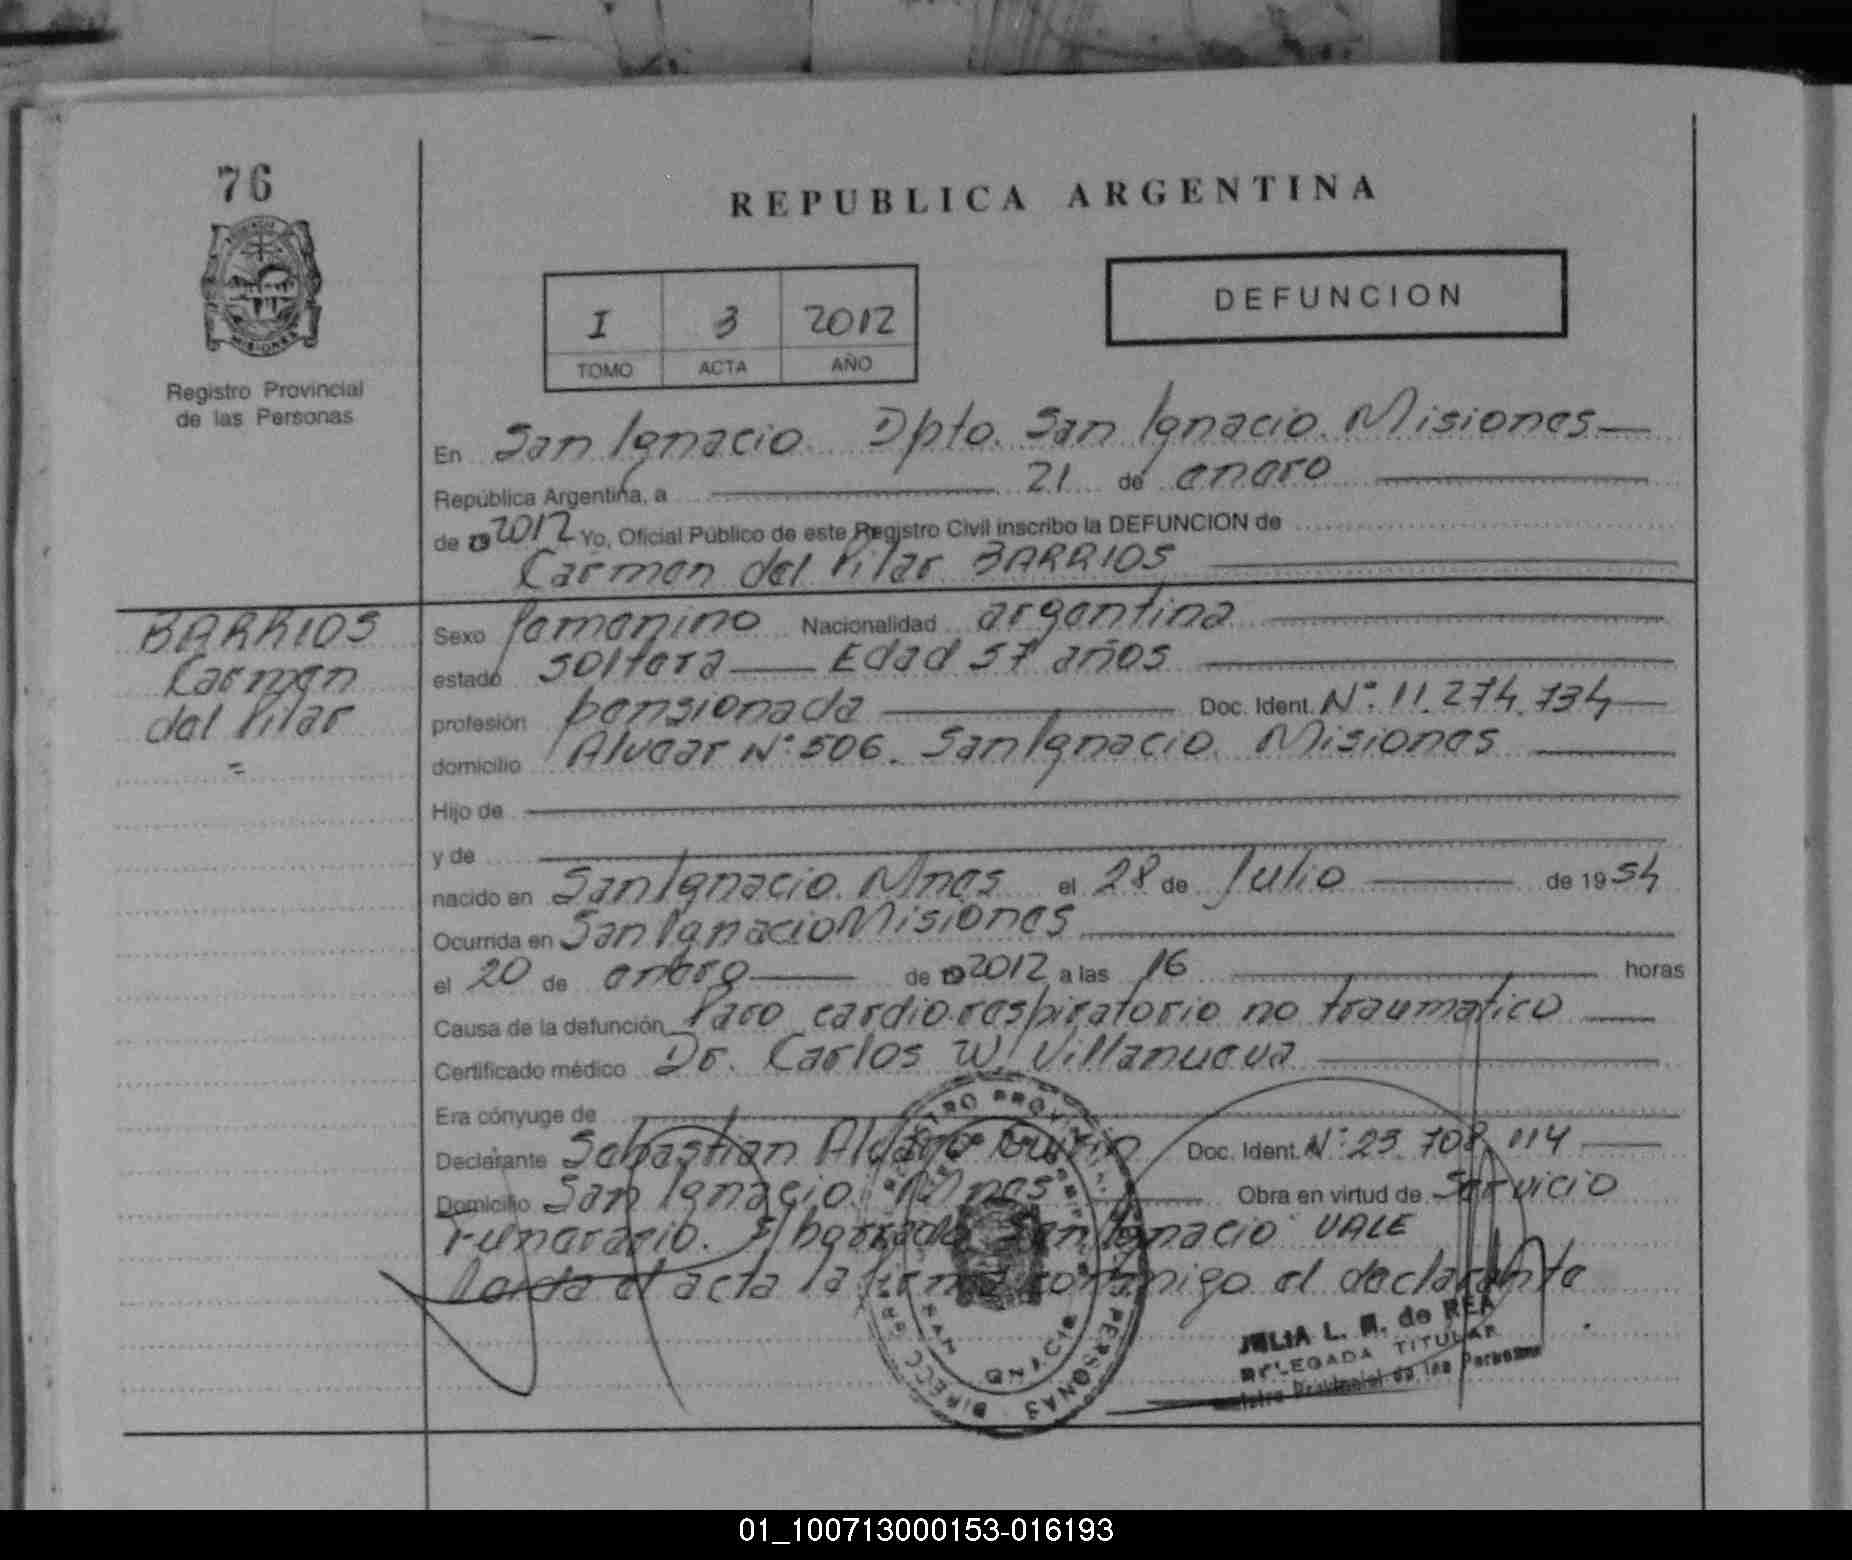 76
REPUBLICA ARGENTINA
DEFUNCION
I 3 2012
TOMO ACTA AÑO
Registro Provincial
de las Personas
MISIONES
En San Ignacio Dpto. San Ignacio. Misiones
República Argentina, a 21 de enero
de 2012 Yo, Oficial Público de este Registro Civil inscribo la DEFUNCION de
Carmen del Pilar BARRIOS
BARRIOS
Carmen
del Pilar
=
Sexo femenino Nacionalidad argentina
estado soltera Edad 57 años
profesión pensionada Doc. Ident. Nº: 11.274.734
domicilio Alvear Nº: 506. San Ignacio. Misiones
Hijo de
y de
nacido en San Ignacio. Mnes el 28 de Julio de 1954
Ocurrida en San Ignacio Misiones
el 20 de enero de 2012 a las 16 horas
Causa de la defunción Paro cardiorespiratorio no traumatico
Certificado médico Dr. Carlos W. Villanueva
Era cónyuge de
Declarante Sebastian Doc. Ident. Nº: 23.708.114
Domicilio San Ignacio. Mnes Obra en virtud de Servicio
Funerario. San Ignacio VALE
Leida el acta la firma conmigo el declarante
REGISTRO PROVINCIAL DE LAS PERSONAS
SAN IGNACIO
JULIA L. M. de REA
DELEGADA TITULAR
Registro Provincial de las Personas
01_100713000153-016193